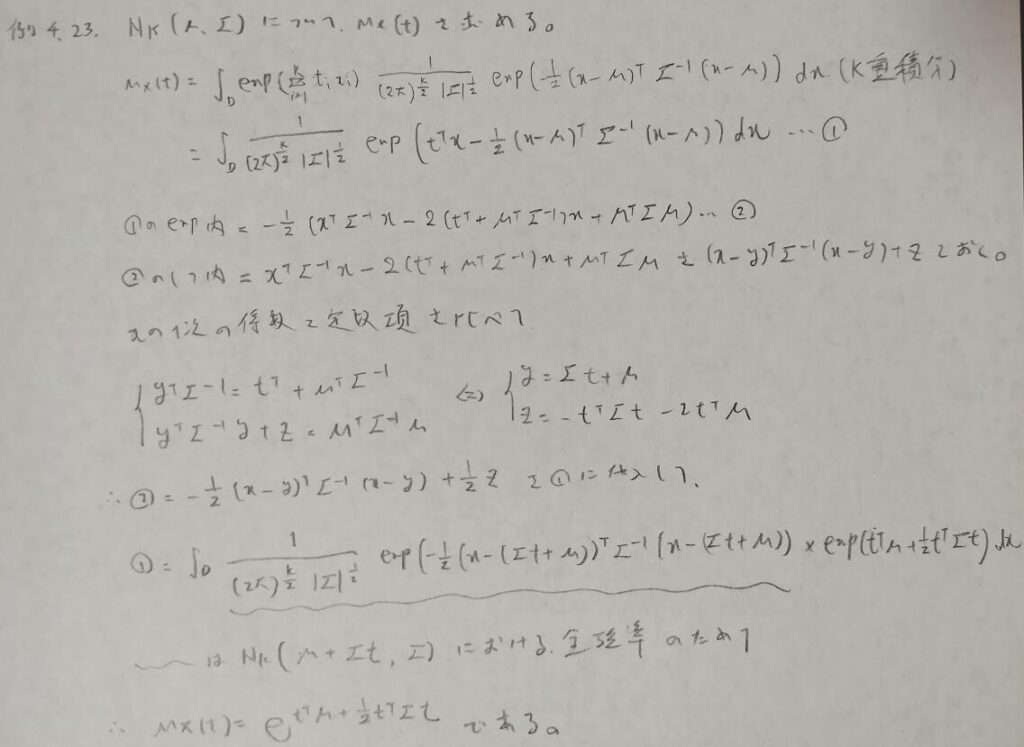 例 4.23. N_K(μ, Σ) について、M_X(t) を求める。
M_X(t) = ∫_D exp(Σ_{i=1}^k t_i x_i) 1/((2π)^{k/2} |Σ|^{1/2}) exp(-1/2 (x-μ)^T Σ^{-1} (x-μ)) dx (K重積分)
= ∫_D 1/((2π)^{k/2} |Σ|^{1/2}) exp(t^T x - 1/2 (x-μ)^T Σ^{-1} (x-μ)) dx … ①
①の exp 内 = -1/2 (x^T Σ^{-1} x - 2(t^T + μ^T Σ^{-1})x + μ^T Σ μ) … ②
②の( )内 = x^T Σ^{-1} x - 2(t^T + μ^T Σ^{-1})x + μ^T Σ μ を (x-y)^T Σ^{-1} (x-y) + z とおく。
xの1次の係数と定数項を比べて
{ y^T Σ^{-1} = t^T + μ^T Σ^{-1} ⇔ { y = Σt + μ
y^T Σ^{-1} y + z = μ^T Σ^{-1} μ z = -t^T Σ t - 2t^T μ
∴ ② = -1/2 (x-y)^T Σ^{-1} (x-y) + 1/2 z を①に代入して、
① = ∫_D 1/((2π)^{k/2} |Σ|^{1/2}) exp(-1/2 (x-(Σt+μ))^T Σ^{-1} (x-(Σt+μ)) × exp(t^T μ + 1/2 t^T Σ t) dx
は N_K(μ + Σt, Σ) における全確率のため 1
∴ M_X(t) = e^{t^T μ + 1/2 t^T Σ t} である。